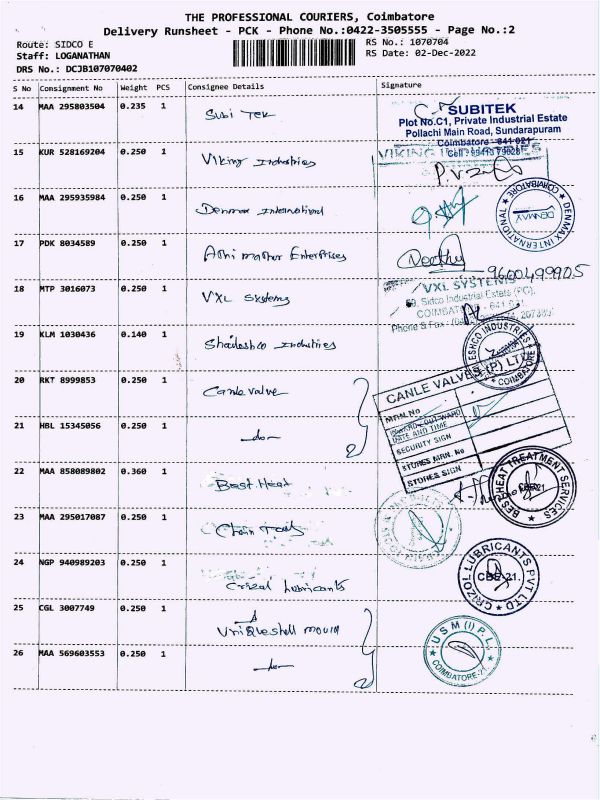 THE PROFESSIONAL COURIERS, Coimbatore
Delivery Runsheet - PCK - Phone No.:0422-3505555 - Page No.:2
Route: SIDCO E
RS No.: 1070704
Staff: LOGANATHAN
RS Date: 02-Dec-2022
DRS No.: DCJB107070402
S No Consignment No Weight PCS Consignee Details Signature
14 MAA 295803504 0.235 1 Subi Tek
SUBITEK
Plot No.C1, Private Industrial Estate
Pollachi Main Road, Sundarapuram
Coimbatore - 641 021
15 KUR 528169204 0.250 1 Viking Industries
VIKING INDUSTRIES
16 MAA 295935984 0.250 1 Denmax International
DENMAX INTERNATIONAL COIMBATORE
DENMAX
17 PDK 8034589 0.250 1 Adhi mather Enterprises
9600499905
18 MTP 3016073 0.250 1 VXL Systems
VXL SYSTEMS
Sidco Industrial Estate (PO),
COIMBATORE - 641 021
Phone & Fax
19 KLM 1030436 0.140 1 Industries
ESHCO INDUSTRIES COIMBATORE
20 RKT 8999853 0.250 1 Canle valve
CANLE VALVES (P) LTD
MRN.No
INWARD/OUTWARD
DATE AND TIME
SECURITY SIGN
STORES MRN. No
STORES SIGN
21 HBL 15345056 0.250 1 -do-
22 MAA 858089802 0.360 1 Best Heat
BEST HEAT TREATMENT SERVICES
CBE-21
23 MAA 295017087 0.250 1 Chain Tools
24 NGP 940989203 0.250 1 Crizol Lubricants
CRIZOL LUBRICANTS PVT LTD
CBE-21.
25 CGL 3007749 0.250 1 Uniqueshell mould
U S M (I) P. L.
COIMBATORE-21
26 MAA 569603553 0.250 1 -do-